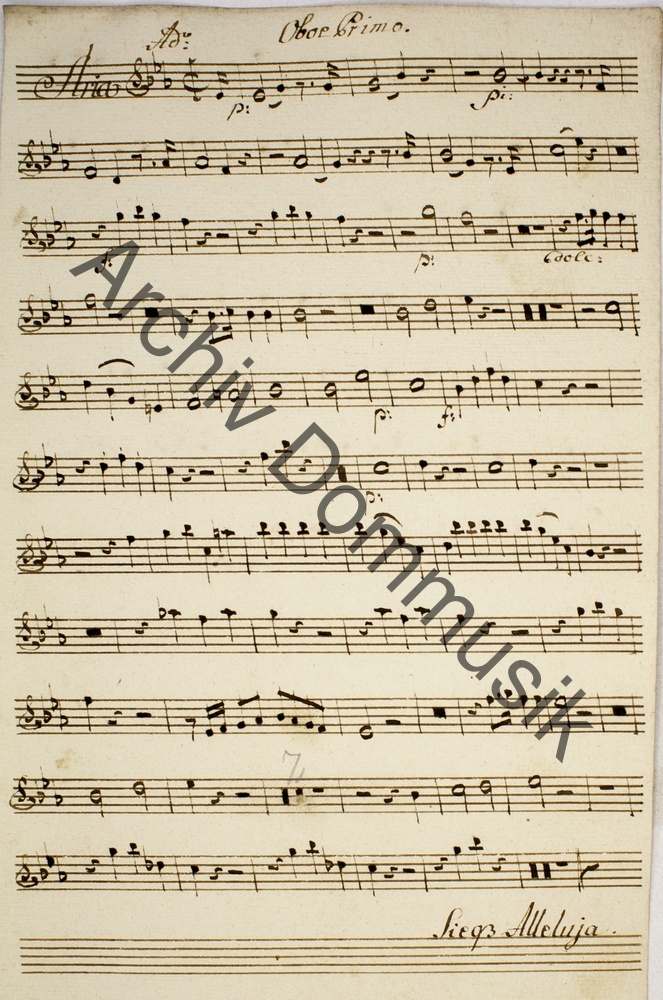 Oboe Primo.
Ad:
Aria
p: pi:
f: p: dole:
p: f:
p:
7
Sieq3 Alleluja.
Archiv Dommusik